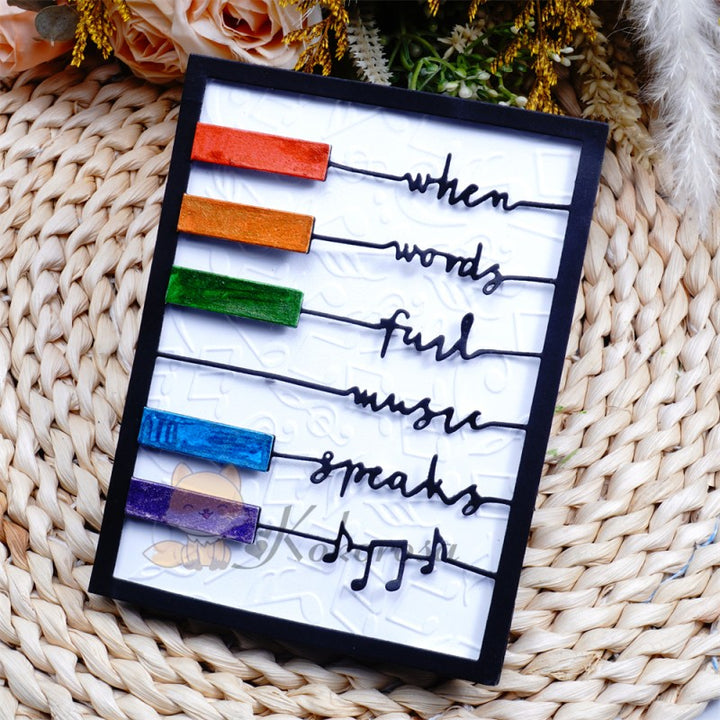 when
words
fail
music
speaks
Kokorosa